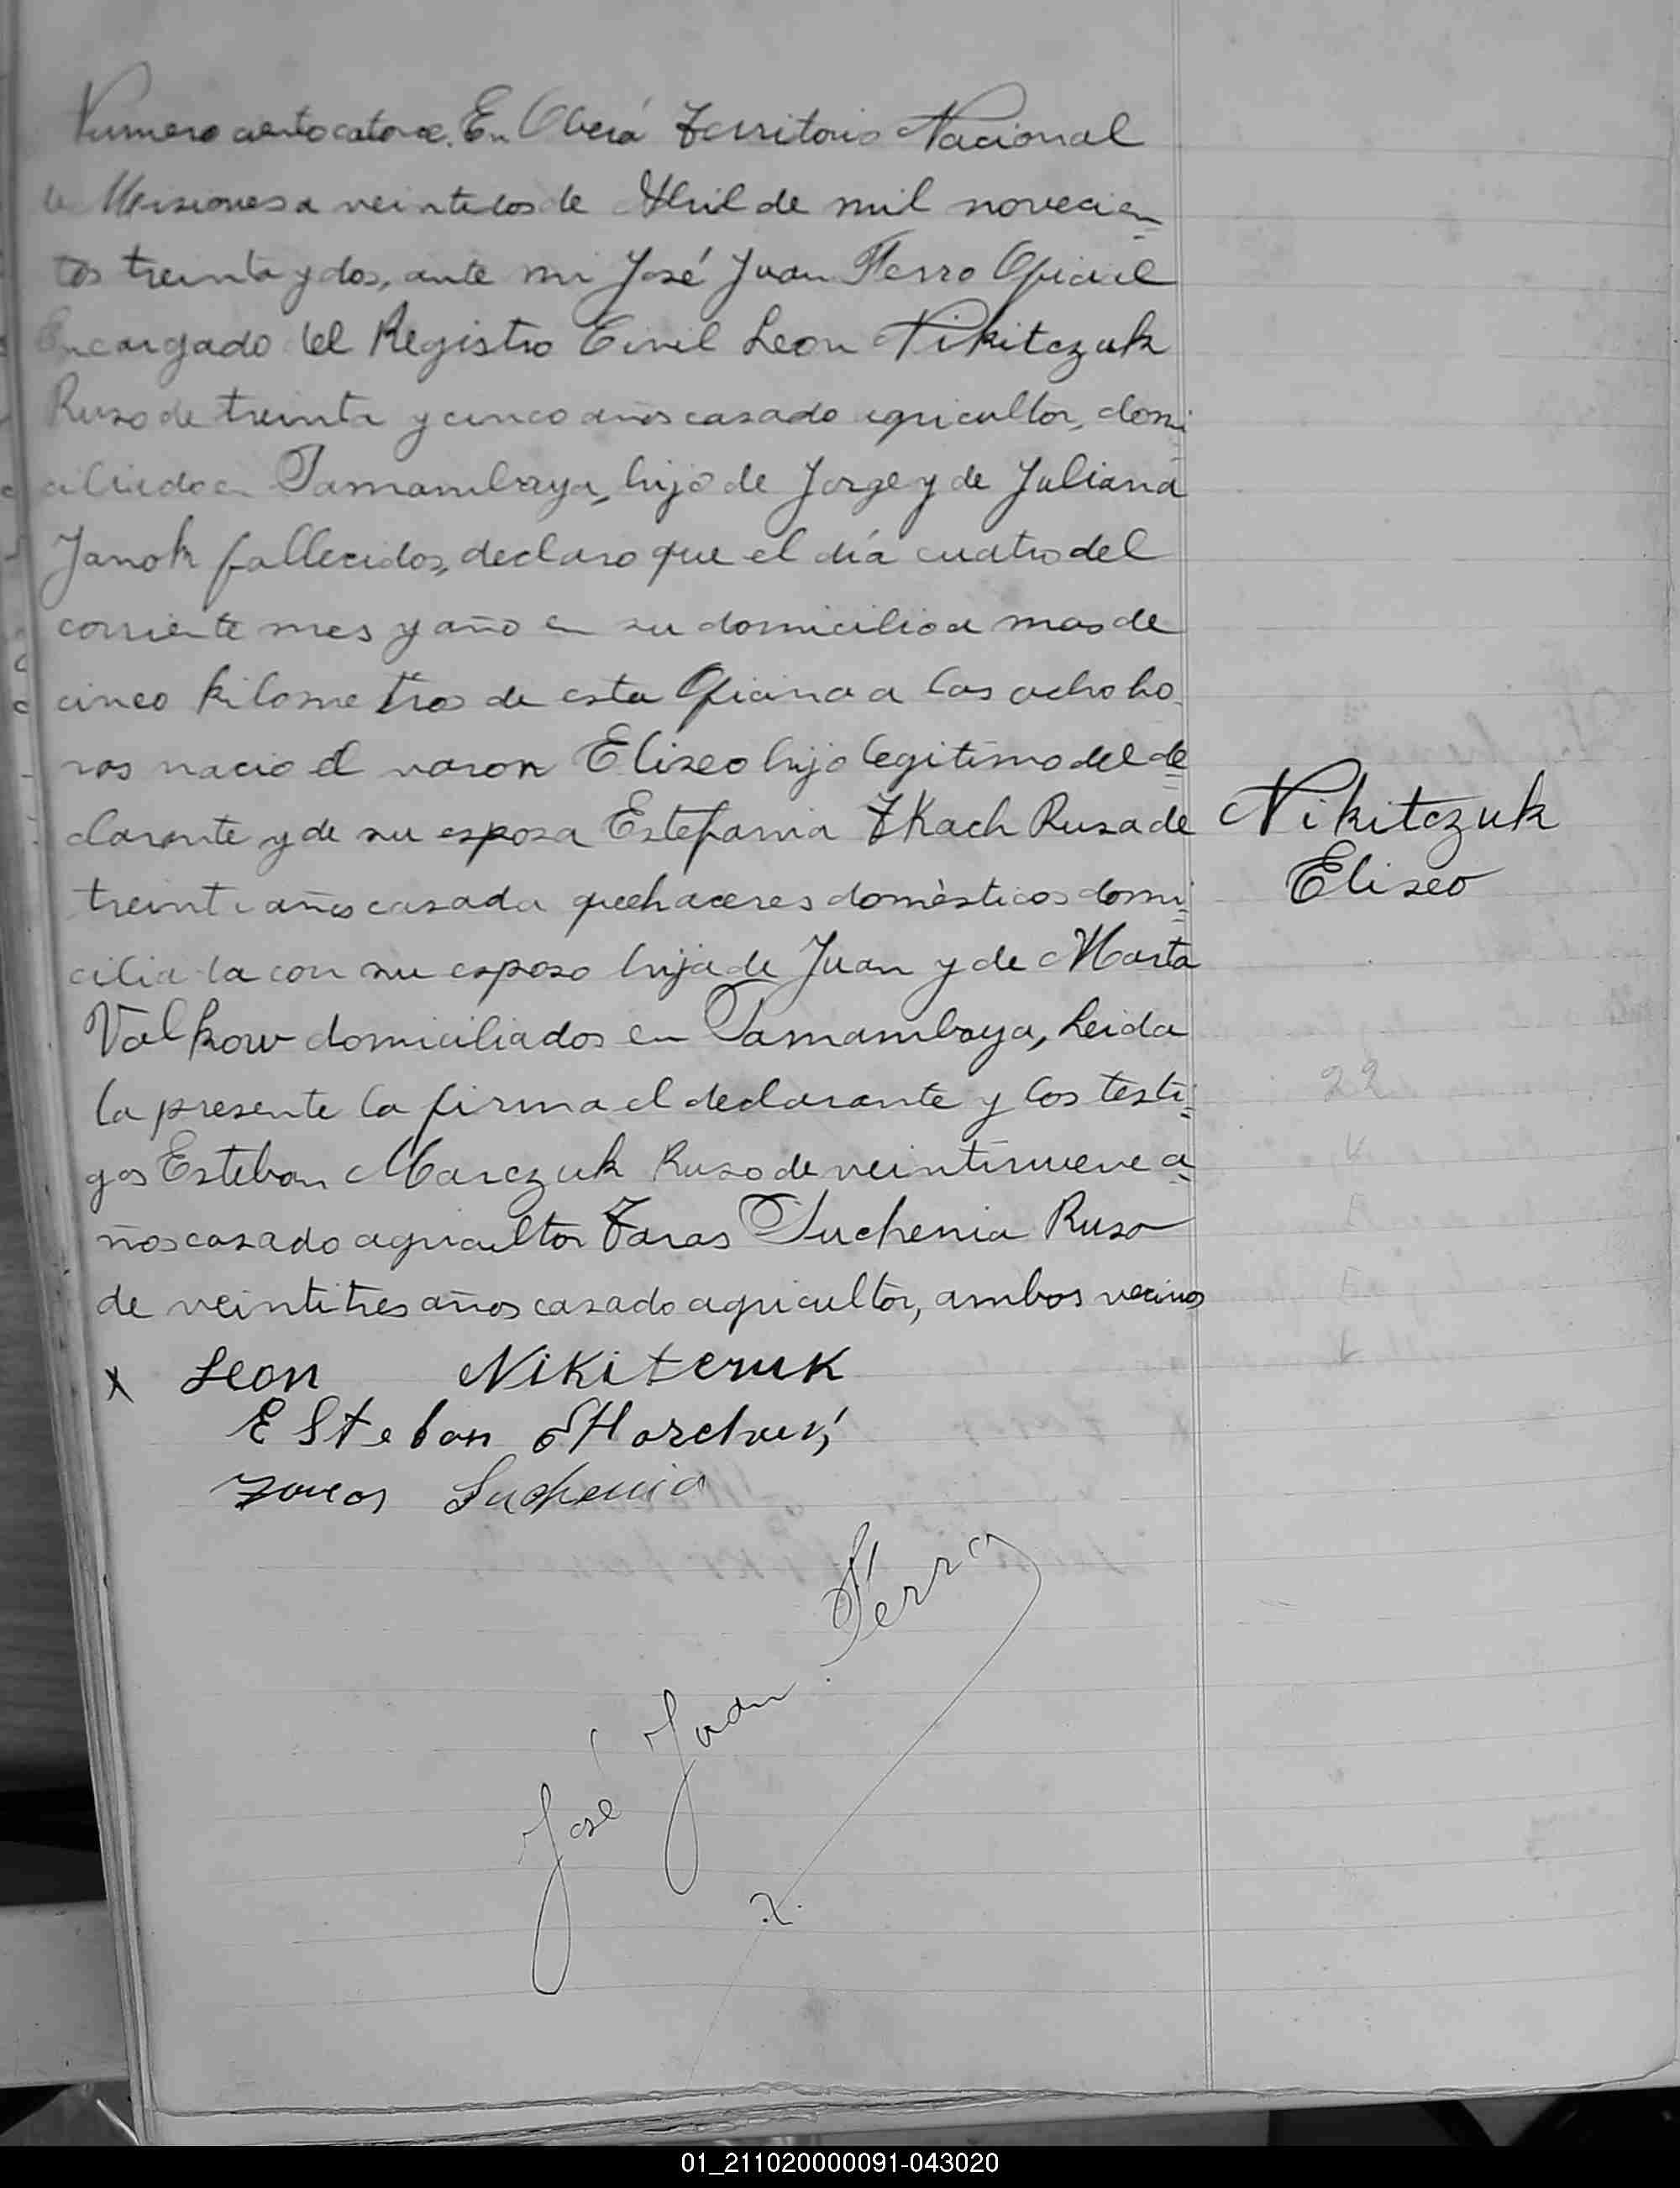 Numero ciento catorce. En Oberá Territorio Nacional
de Misiones a veintidos de Abril de mil novecien
tos treinta y dos, ante mi José Juan Ferro Oficial
Encargado del Registro Civil Leon Nikitczuk
Ruso de treinta y cinco años casado agricultor, domi
ciliado en Samambaya, hijo de Jorge y de Juliana
Janok fallecidos, declaro que el día cuatro del
corriente mes y año en su domicilio a mas de
cinco kilometros de esta Oficina a las ocho ho
ras nacio el varon Eliseo hijo legitimo del de
clarante y de su esposa Estefania Tkach Rusa de
Nikitczuk
Eliseo
treinta años casada quehaceres domèsticos domi
ciliada con su esposo hija de Juan y de Marta
Valkow domiciliados en Samambaya, Leida
la presente la firma el declarante y los testi
gos Esteban Marczuk Ruso de veintinueve a
ños casado agricultor Taras Suchenia Ruso
de veintitres años casado agricultor, ambos vecinos
22
x Leon Nikitczuk
Esteban
Taras Suchenia
José Juan Ferro
01_211020000091-043020